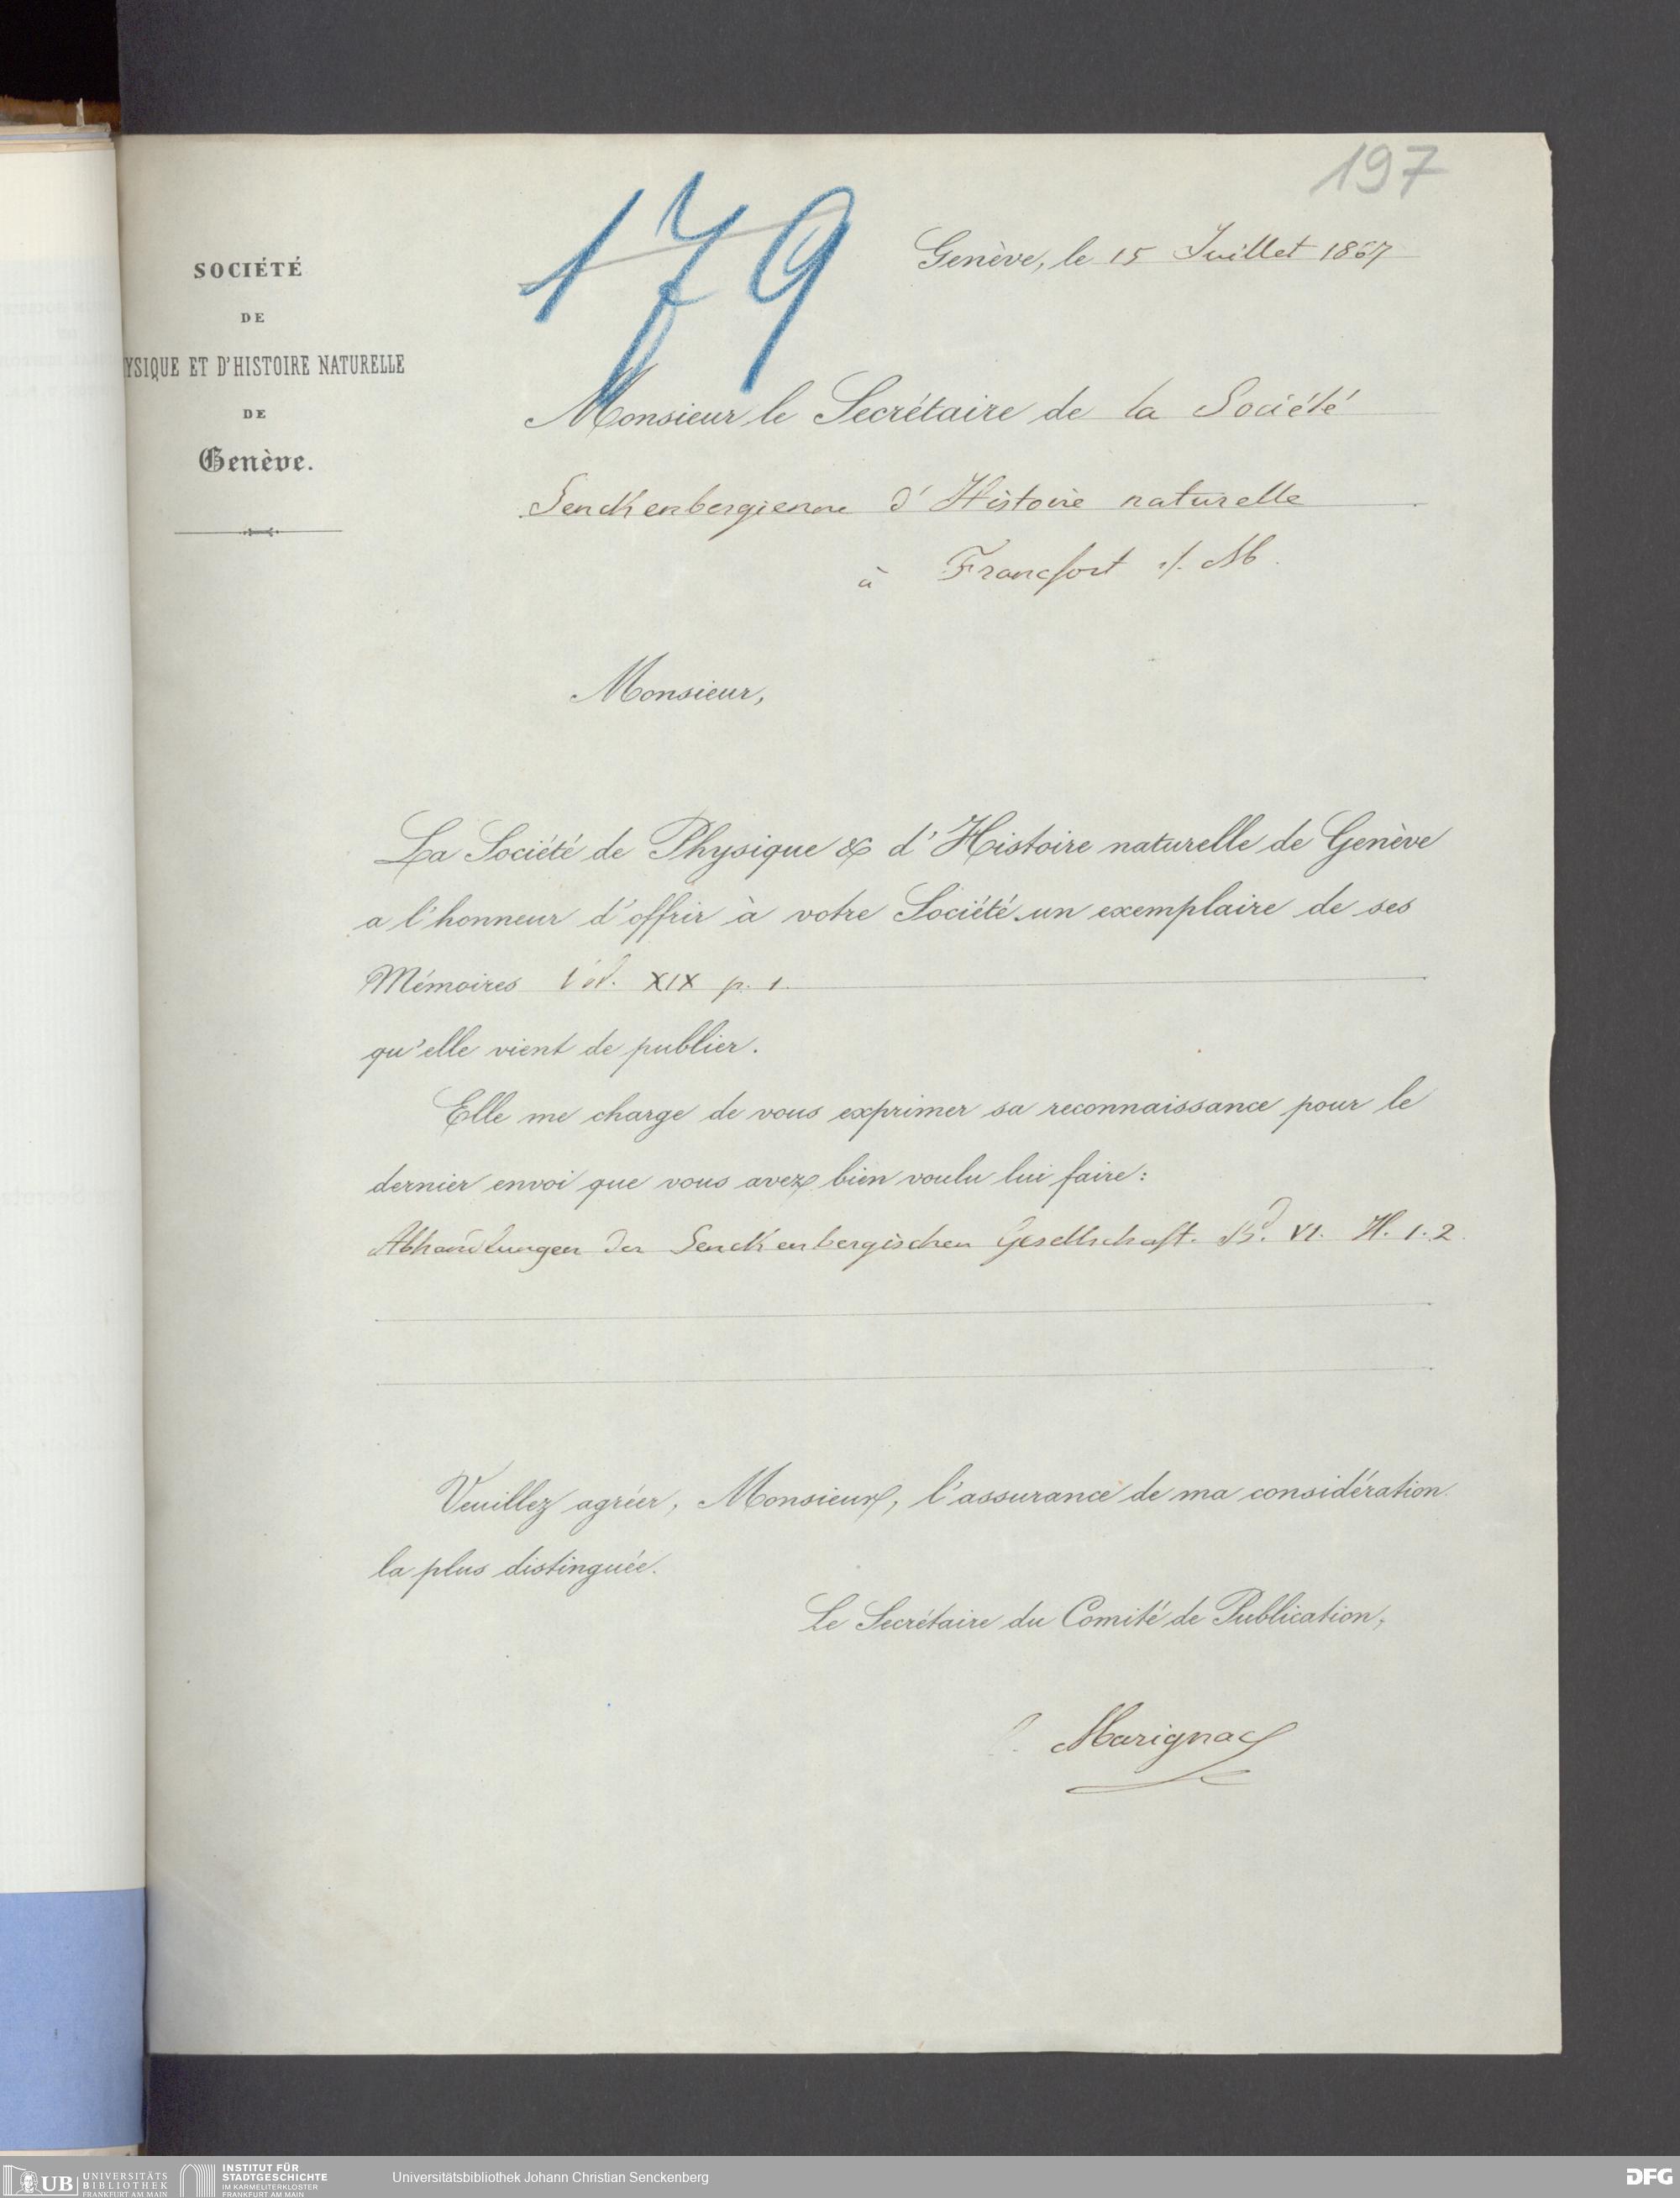 197
179
Genève, le 15 Juillet 1867
SOCIÉTÉ
DE
YSIQUE ET D'HISTOIRE NATURELLE
DE
Genève.
Monsieur le Secrétaire de la Société
Senckenbergienne d'Histoire naturelle
à Francfort s/. M.
Monsieur,
La Société de Physique & d'Histoire naturelle de Genève
a l'honneur d'offrir à votre Société un exemplaire de ses
Mémoires Vol. XIX p. 1.
qu'elle vient de publier.
Elle me charge de vous exprimer sa reconnaissance pour le
dernier envoi que vous avez bien voulu lui faire:
Abhandlungen der Senckenbergischen Gesellschaft. Bd. VI. H. 1.2.
Veuillez agréer, Monsieur, l'assurance de ma considération
la plus distinguée.
Le Secrétaire du Comité de Publication,
C. Marignac
UB UNIVERSITÄTS
BIBLIOTHEK
FRANKFURT AM MAIN
INSTITUT FÜR
STADTGESCHICHTE
IM KARMELITERKLOSTER
FRANKFURT AM MAIN
Universitätsbibliothek Johann Christian Senckenberg
DFG